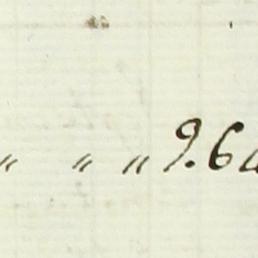 " " " 9.6